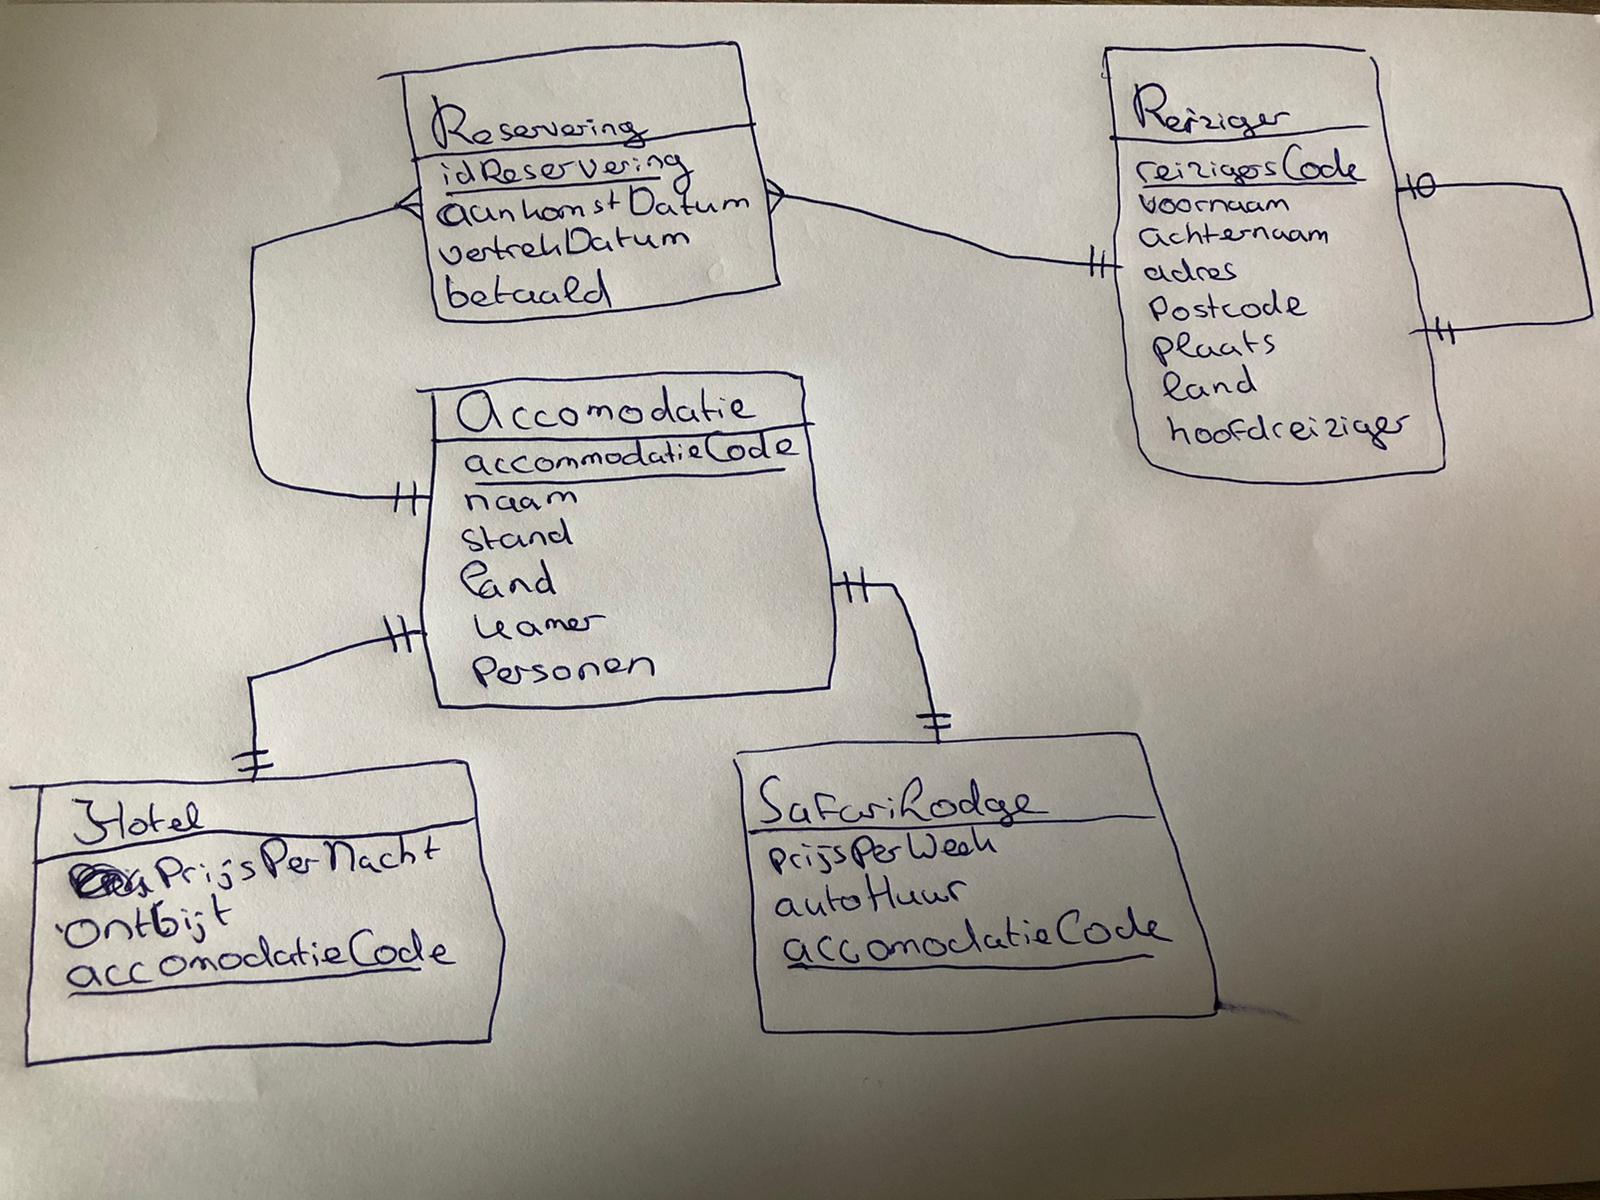 Reservering
idReservering
aankomstDatum
vertrekDatum
betaald
Reiziger
reizigersCode
voornaam
achternaam
adres
Postcode
plaats
land
hoofdreiziger
Accomodatie
accommodatieCode
naam
stand
land
kamer
Personen
Hotel
PrijsPerNacht
ontbijt
accomodatieCode
SafariLodge
prijsPerWeek
autoHuur
accomodatieCode